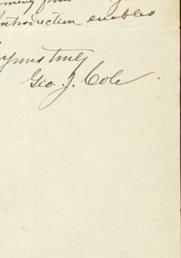 introduction enables
Yours truly
Geo. J. Cole.